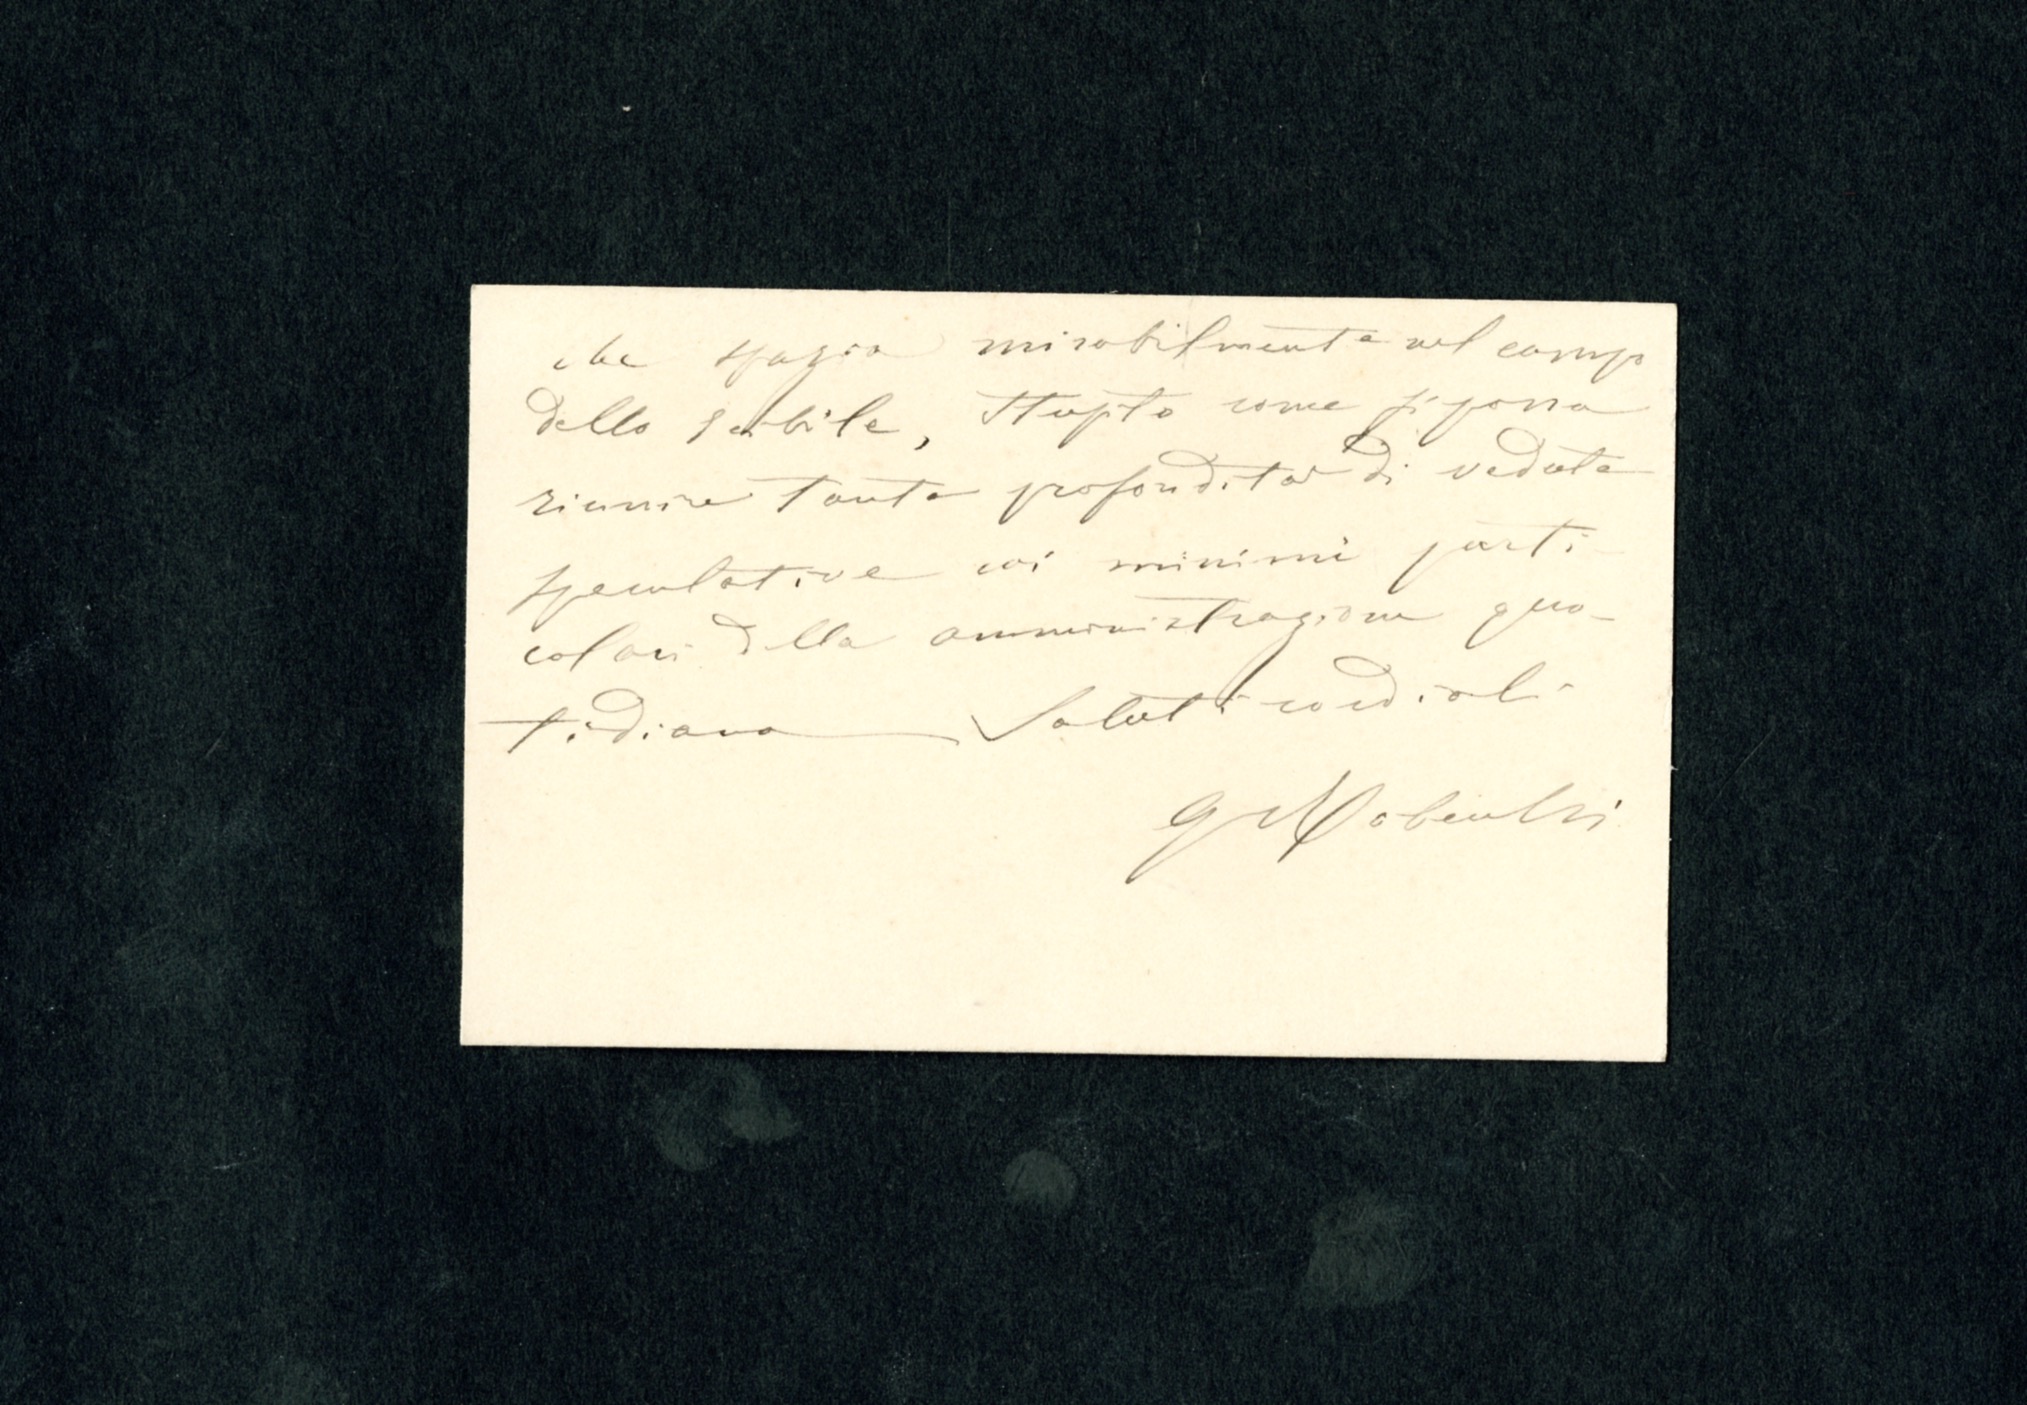 che spazia mirabilmente nel campo
dello scibile, stupito come si possa
riunire tante profondità di vedute
speculative coi minimi parti-
colari della amministrazione quo-
tidiana Saluti cordiali
G